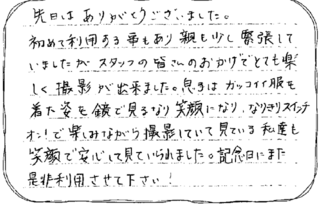 先日はありがとうございました。
初めて利用する事もあり親も少し緊張して
いましたがスタッフの皆さんのおかげでとても楽
しく撮影が出来ました。息子はカッコイイ服を
着た姿を鏡で見るなり笑顔になり、なりきりスイッチ
オン!で楽しみながら撮影していて見ている私達も
笑顔で安心して見ていられました。記念日にまた
是非利用させて下さい!